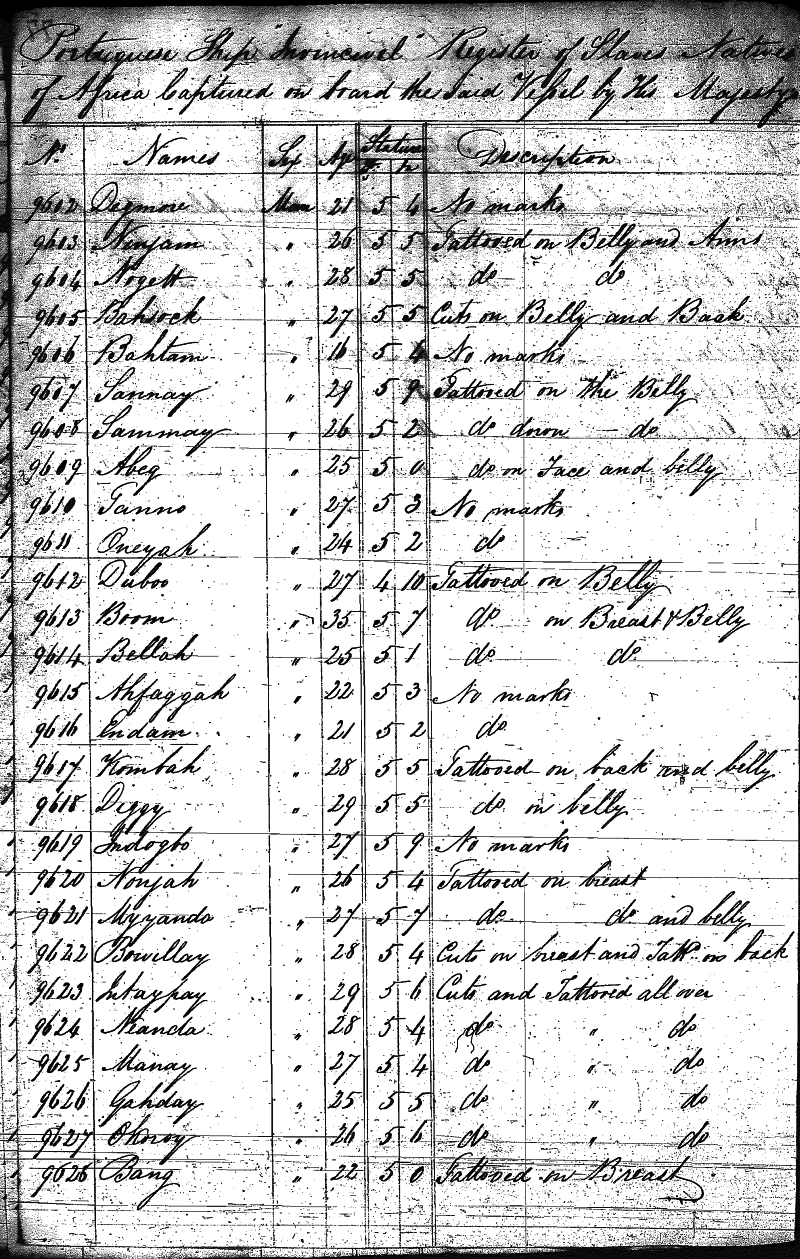 Portuguese Ship "Invincivel" Register of Slaves Natives
of Africa Captured on board the said Vessel by His Majesty
No. Names Sex Age Stature Description
Ft In
9602 Degmore Man 21 5 4 No marks
9603 Ninjam " 26 5 5 Tattooed on Belly and Arms
9604 Nogett " 28 5 5 do do
9605 Bahsock " 27 5 5 Cuts on Belly and Back
9606 Bahtam " 16 5 4 No marks
9607 Sannay " 29 5 9 Tattooed on the Belly
9608 Sammay " 26 5 2 do down do
9609 Abeg " 25 5 0 do on Face and belly
9610 Tanno " 27 5 3 No marks
9611 Oneyah " 24 5 2 do
9612 Duboo " 27 4 10 Tattooed on Belly
9613 Boom " 35 5 7 do on Breast & Belly
9614 Bellah " 25 5 1 do do
9615 Ahfaggah " 22 5 3 No marks
9616 Endam " 21 5 2 do
9617 Kombah " 28 5 5 Tattooed on back and belly
9618 Deggy " 29 5 5 do on belly
9619 Indogbo " 27 5 9 No marks
9620 Nonjah " 26 5 4 Tattooed on breast
9621 Myyando " 27 5 7 do do and belly
9622 Bowillay " 28 5 4 Cuts on breast and Tattd. on back
9623 Intaypay " 29 5 6 Cuts and Tattooed all over
9624 Neanda " 28 5 4 do " do
9625 Manay " 27 5 4 do " do
9626 Gahday " 25 5 5 do " do
9627 Okoroy " 26 5 6 do " do
9628 Bang " 22 5 0 Tattooed on Breast